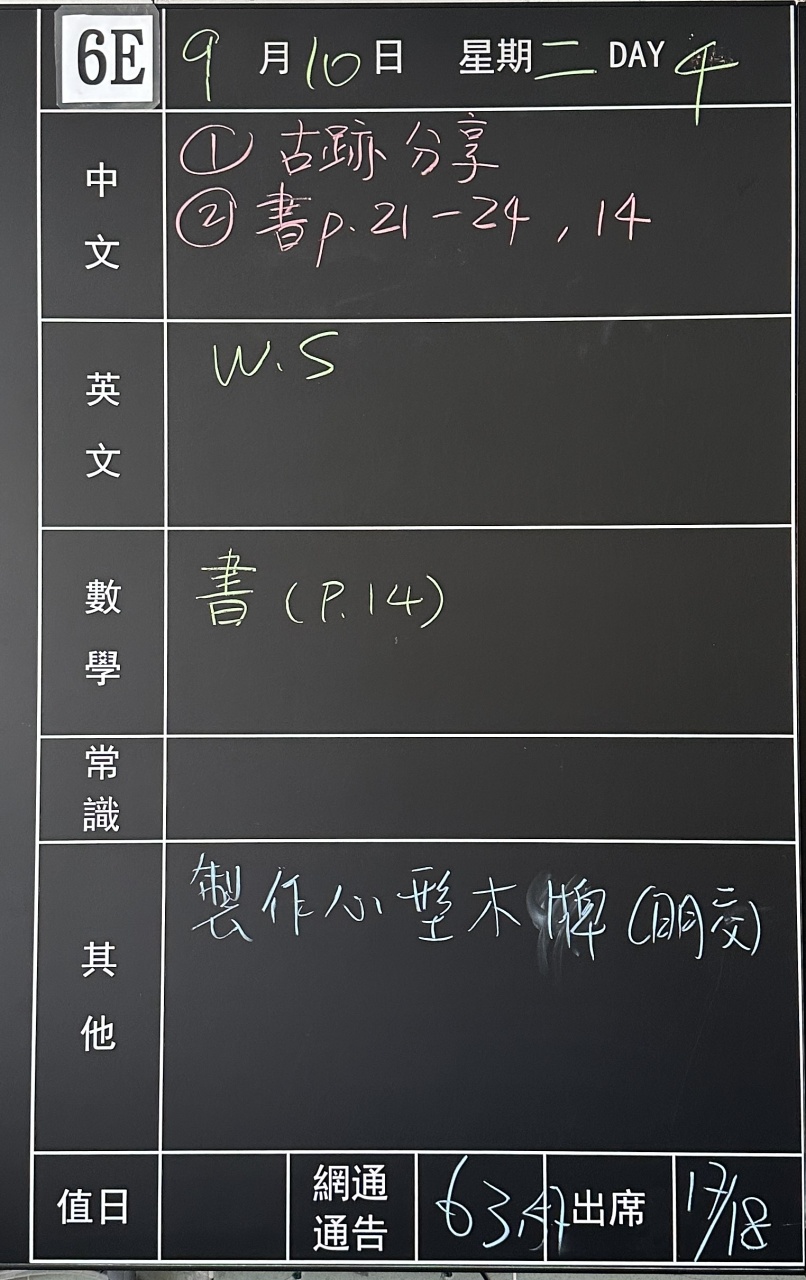 6E 9月10日 星期二 DAY 4
中文 ① 古跡分享
② 書p.21-24,14
英文 W.S
數學 書(P.14)
常識
其他 製作心型木牌(明交)
值日 網通通告 63, 出席 17/18